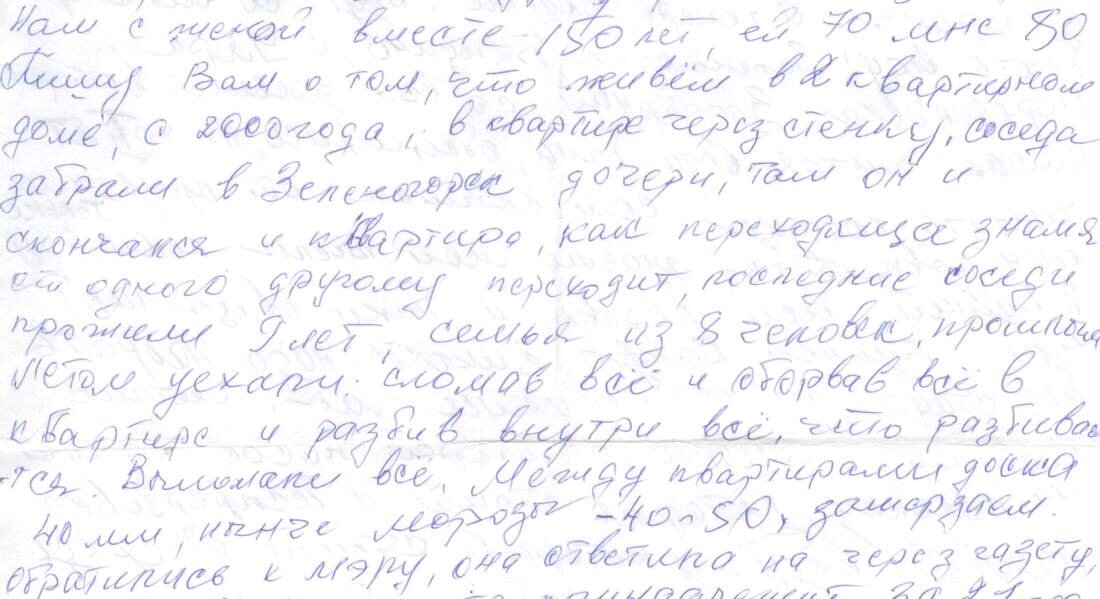 Нам с женой вместе 150 лет, ей 70 мне 80
Пишу Вам о том, что живём в 2 квартирном
доме, с 2000 года, в квартире через стенку, соседа
забрали в Зеленогорск дочери, там он и
скончался и квартира, как переходящее знамя
от одного другому переходит, последние соседи
прожили 9 лет, семья из 8 человек, прошлым
летом уехали. сломав всё и оборвав всё в
квартире и разбив внутри всё, что разбивае
тся. Выломали всё. Между квартирами доска
40 мм, нынче морозы -40-50, замерзаем.
обратились к мэру, она ответила на через газету,